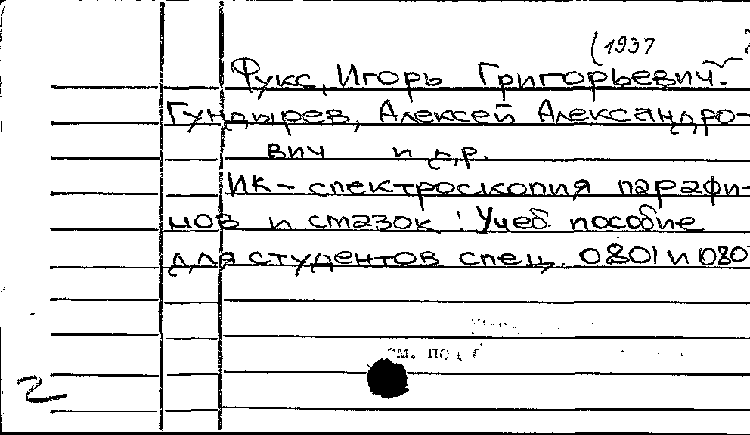 (1937
Фукс, Игорь Григорьевич.
Гундырев, Алексей Александро-
вич и др.
ИК-спектроскопия парафи-
нов и смазок : Учеб. пособие
для студентов спец. 0801 и 080
см. по
2